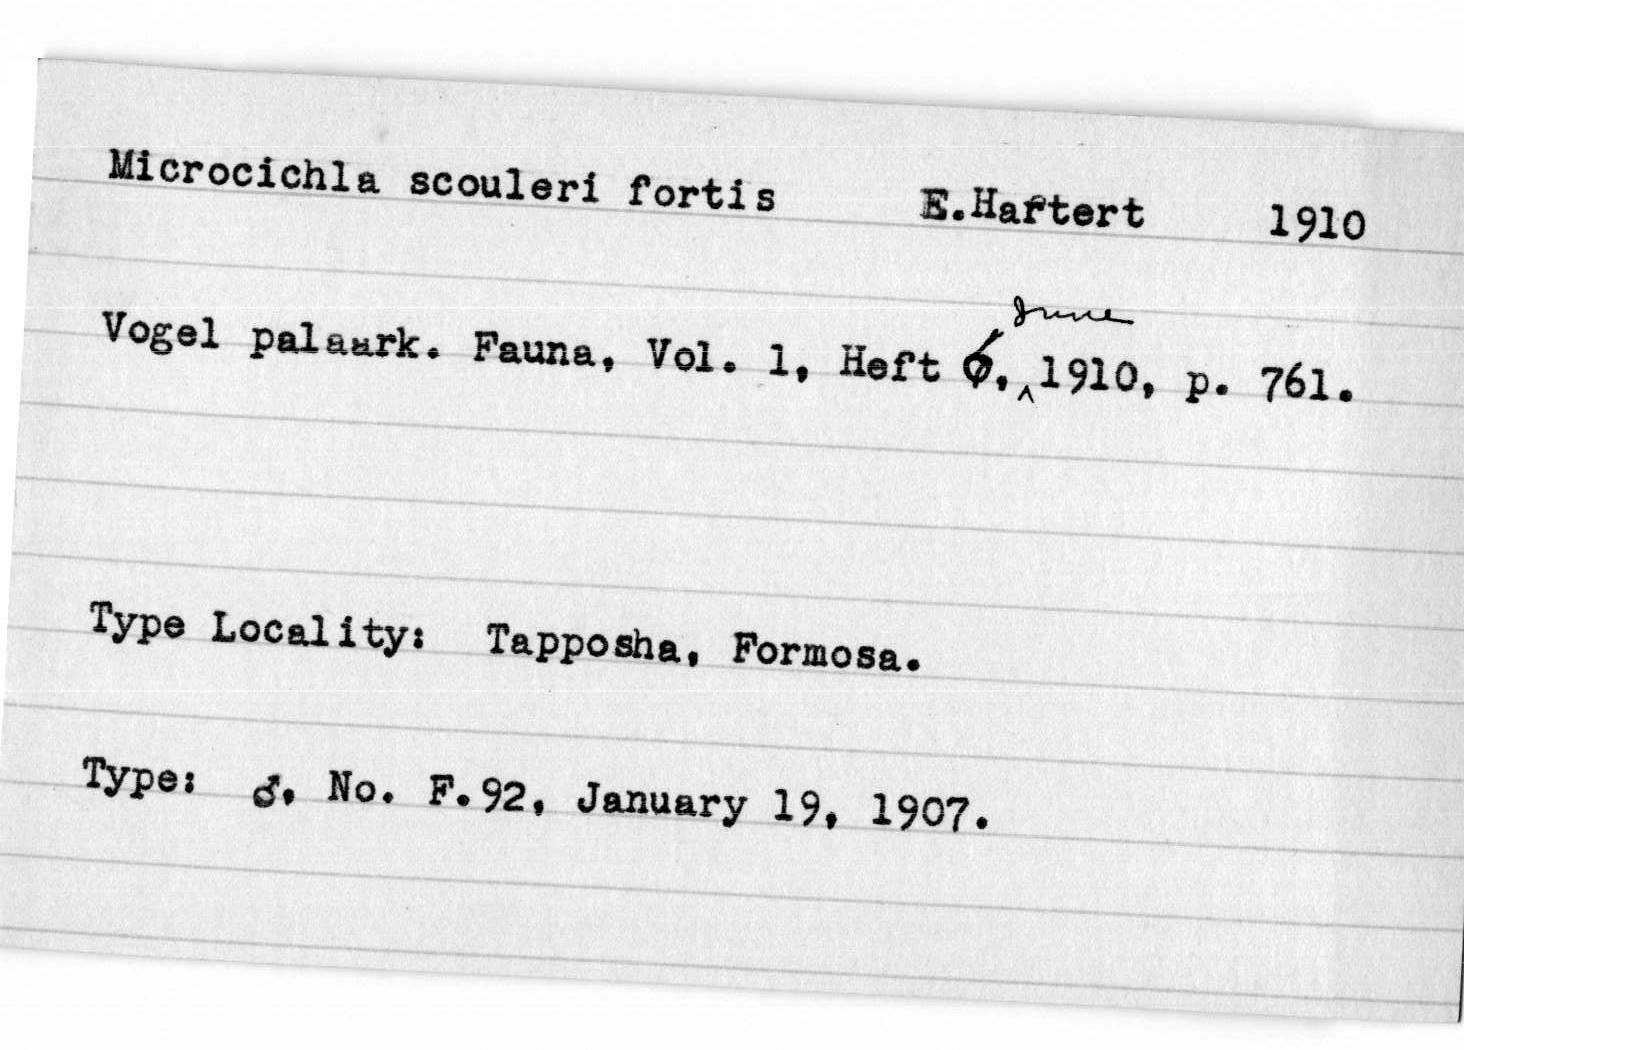 Microcichla scouleri fortis E.Hartert 1910
June
Vogel palaark. Fauna, Vol. 1, Heft 6, ^ 1910, p. 761.
Type Locality: Tapposha, Formosa.
Type: ♂, No. F.92, January 19, 1907.